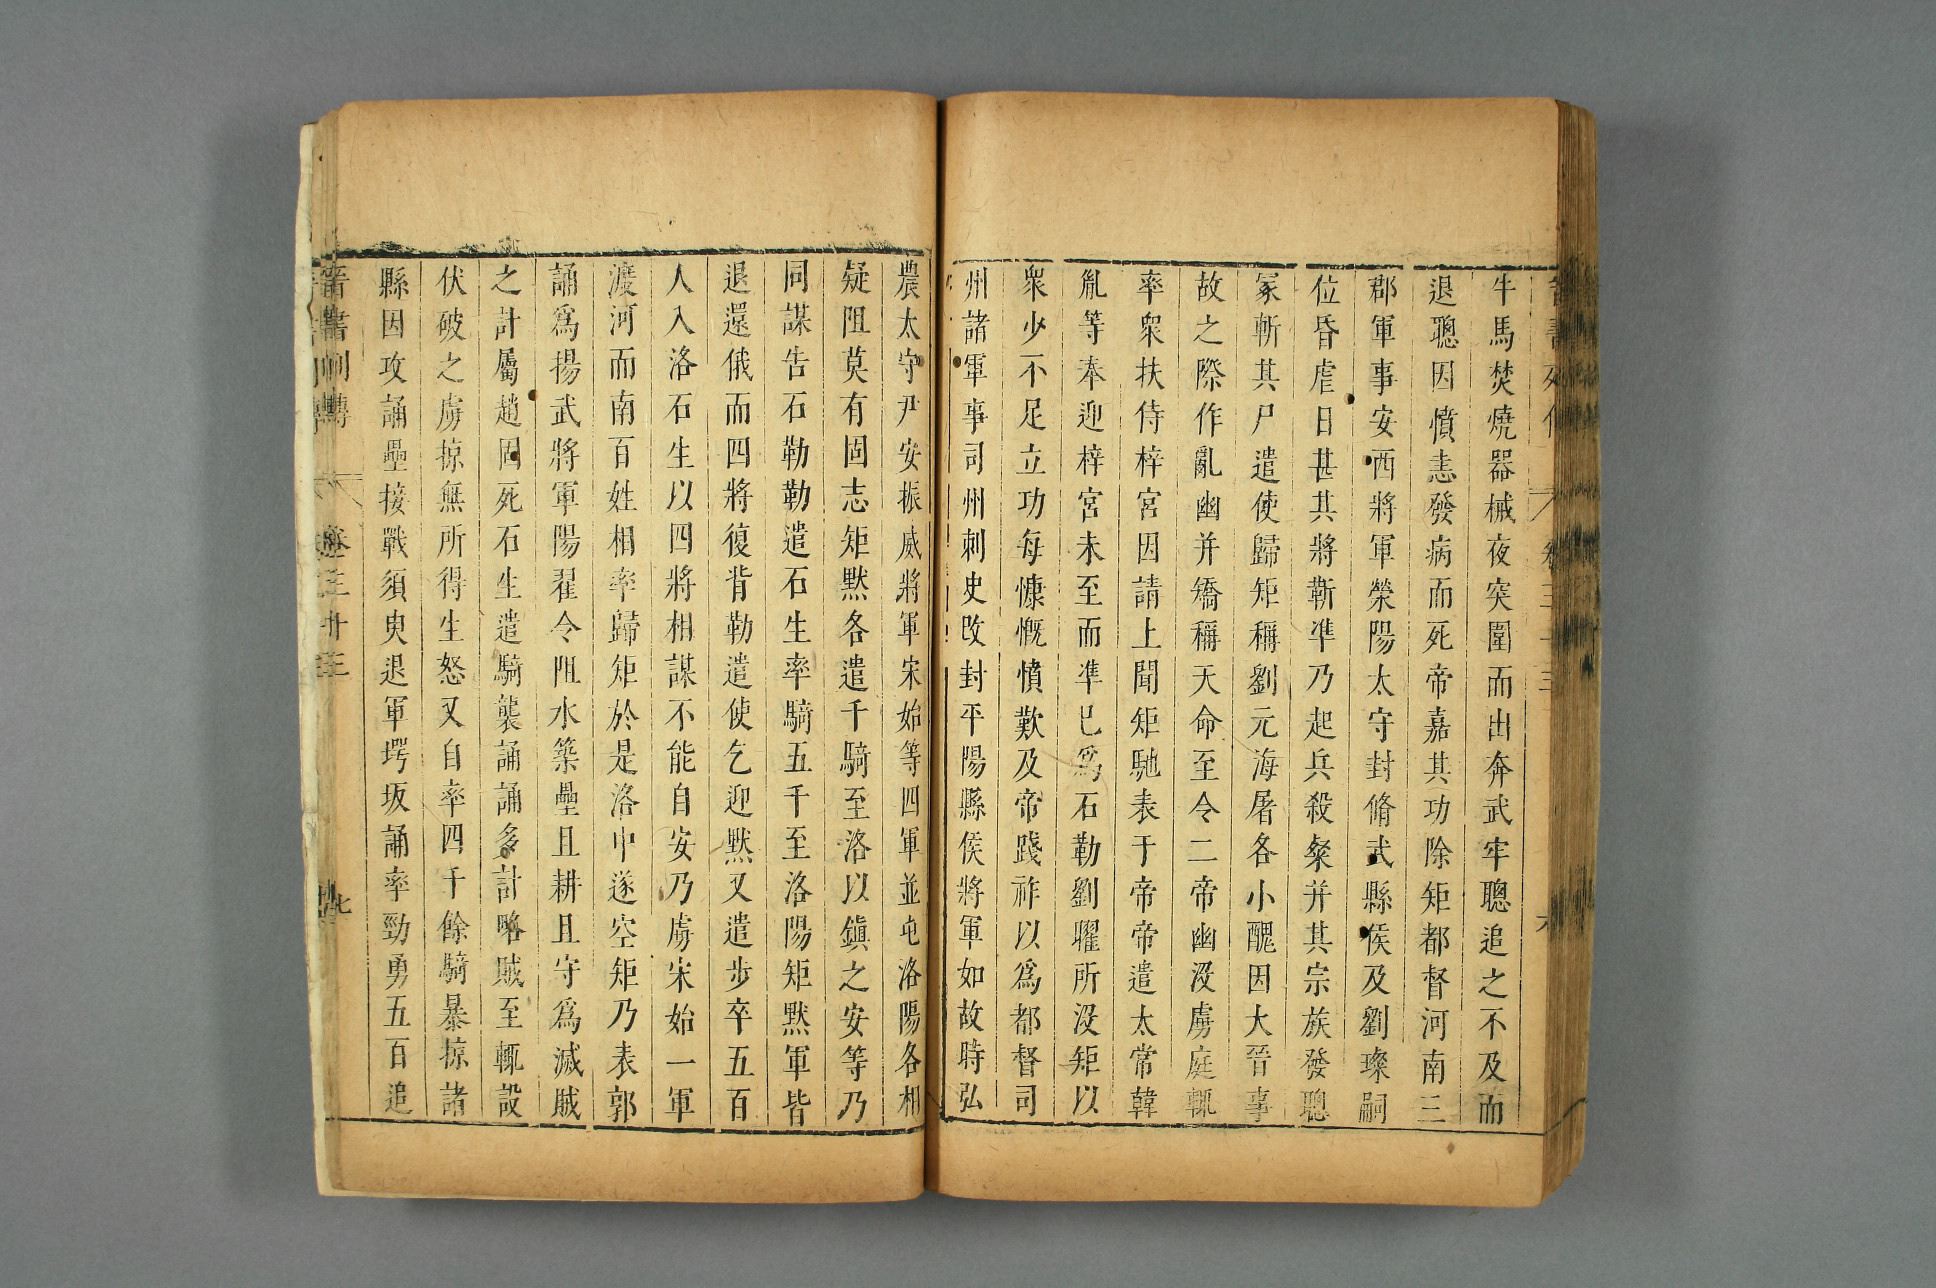 牛馬焚燒器械夜突圍而出奔武牢聰追之不及而
退聰因憤恚發病而死帝嘉其功除矩都督河南三
郡軍事安西將軍滎陽太守封脩武縣侯及劉璨嗣
位昏虐日甚其將靳準乃起兵殺粲并其宗族發聰
冢斬其尸遣使歸矩稱劉元海屠各小醜因大晉事
故之際作亂幽并矯稱天命至令二帝幽沒虜庭輒
率眾扶侍梓宮因請上聞矩馳表于帝帝遣太常韓
胤等奉迎梓宮未至而準已爲石勒劉曜所沒矩以
眾少不足立功每慷慨憤歎及帝踐祚以爲都督司
州諸軍事司州刺史改封平陽縣侯將軍如故時弘
農太守尹安振威將軍宋始等四軍並屯洛陽各相
疑阻莫有固志矩默各遣千騎至洛以鎮之安等乃
同謀告石勒勒遣石生率騎五千至洛陽矩默軍皆
退還俄而四將復背勒遣使乞迎默又遣步卒五百
人入洛石生以四將相謀不能自安乃虜宋始一軍
渡河而南百姓相率歸矩於是洛中遂空矩乃表郭
誦爲揚武將軍陽翟令阻水築壘且耕且守爲滅賊
之計屬趙固死石生遣騎襲誦誦多計略賊至輒設
伏破之虜掠無所得生怒又自率四千餘騎暴掠諸
縣因攻誦壘接戰須臾退軍堮坂誦率勁勇五百追
晉書列傳 卷三十三